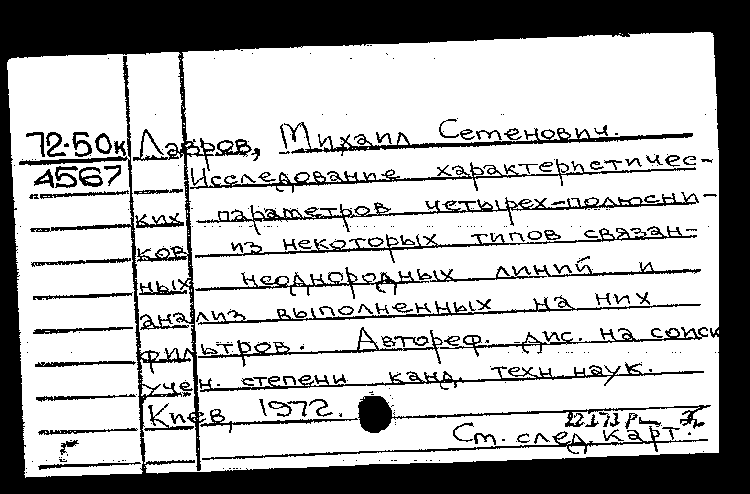 72-50к Лавров, Михаил Семенович.
4567 Исследование характеристичес-
ких параметров четырех-полюсни-
ков из некоторых типов связан-
ных неоднородных линий и
анализ выполненных на них
фильтров. Автореф. дис. на соиск
учен. степени канд. техн. наук.
Киев, 1972.
См. след. карт.